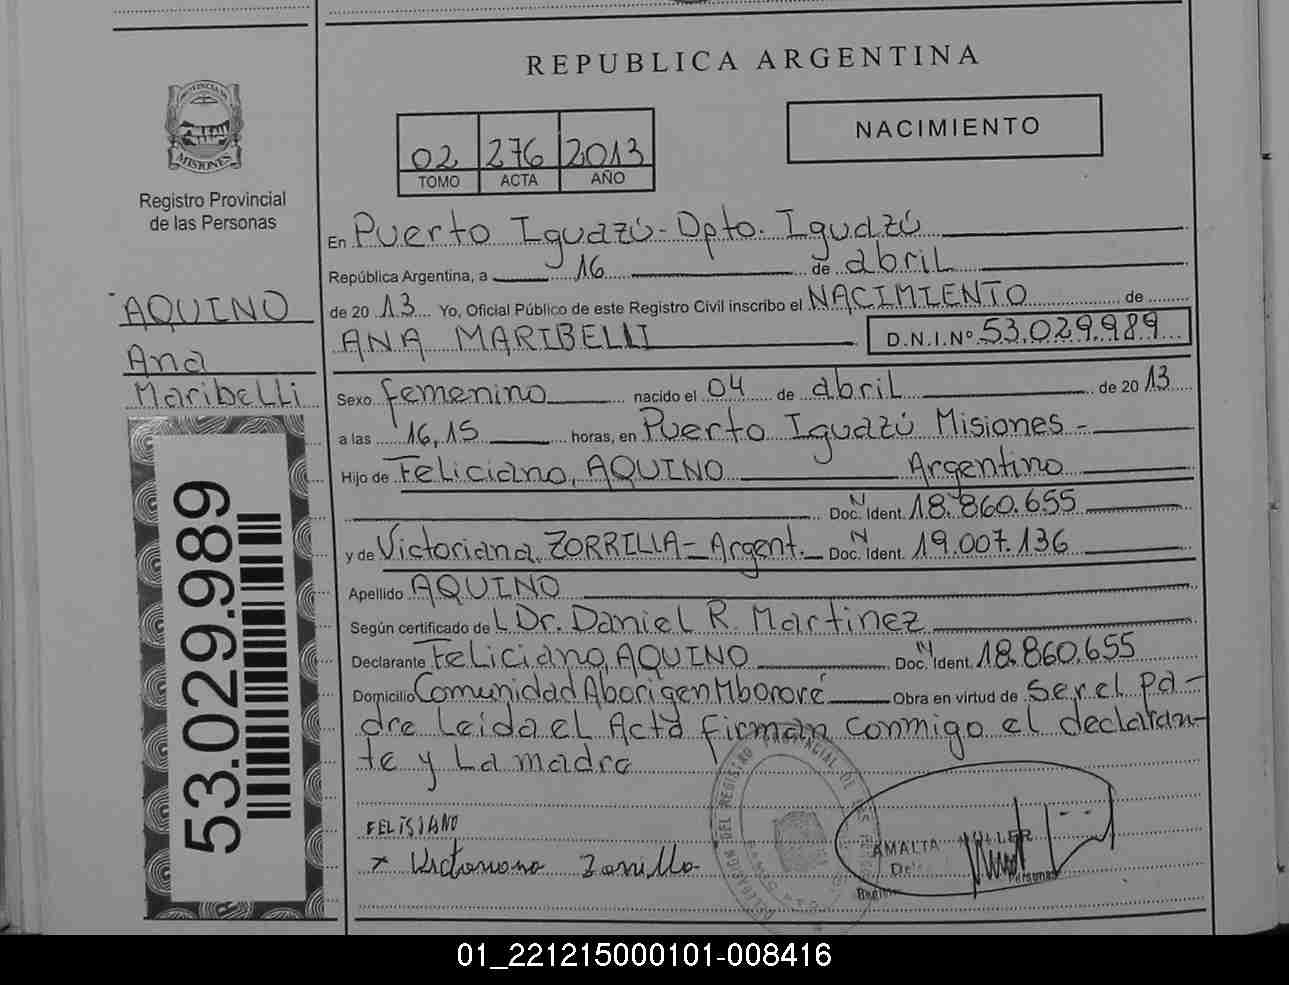 REPUBLICA ARGENTINA
PROVINCIA DE
MISIONES
Registro Provincial
de las Personas
02 276 2013
TOMO ACTA AÑO
NACIMIENTO
En Puerto Iguazú - Dpto. Iguazú
República Argentina, a 16 de abril
de 20 13 Yo, Oficial Público de este Registro Civil inscribo el NACIMIENTO de
ANA MARIBELLI D.N.I.Nº 53.029.989
AQUINO
Ana
Maribelli
Sexo femenino nacido el 04 de abril de 20 13
a las 16,15 horas, en Puerto Iguazú Misiones -
Hijo de Feliciano, AQUINO Argentino
Doc. N Ident. 18.860.655
y de Victoriana, ZORRILLA - Argent. Doc. N Ident. 19.007.136
Apellido AQUINO
Según certificado de L Dr. Daniel R. Martinez
Declarante Feliciano, AQUINO Doc. N Ident. 18.860.655
Domicilio Comunidad Aborigen Mbororé Obra en virtud de ser el pa-
dre Leida el Acta firman conmigo el declaran-
te y La madre
53.029.989
FELISIANO
x Victoriana Zorrilla
DELEGACION DEL REGISTRO PROVINCIAL DE LAS
AMALIA MULLER
Personas
01_221215000101-008416